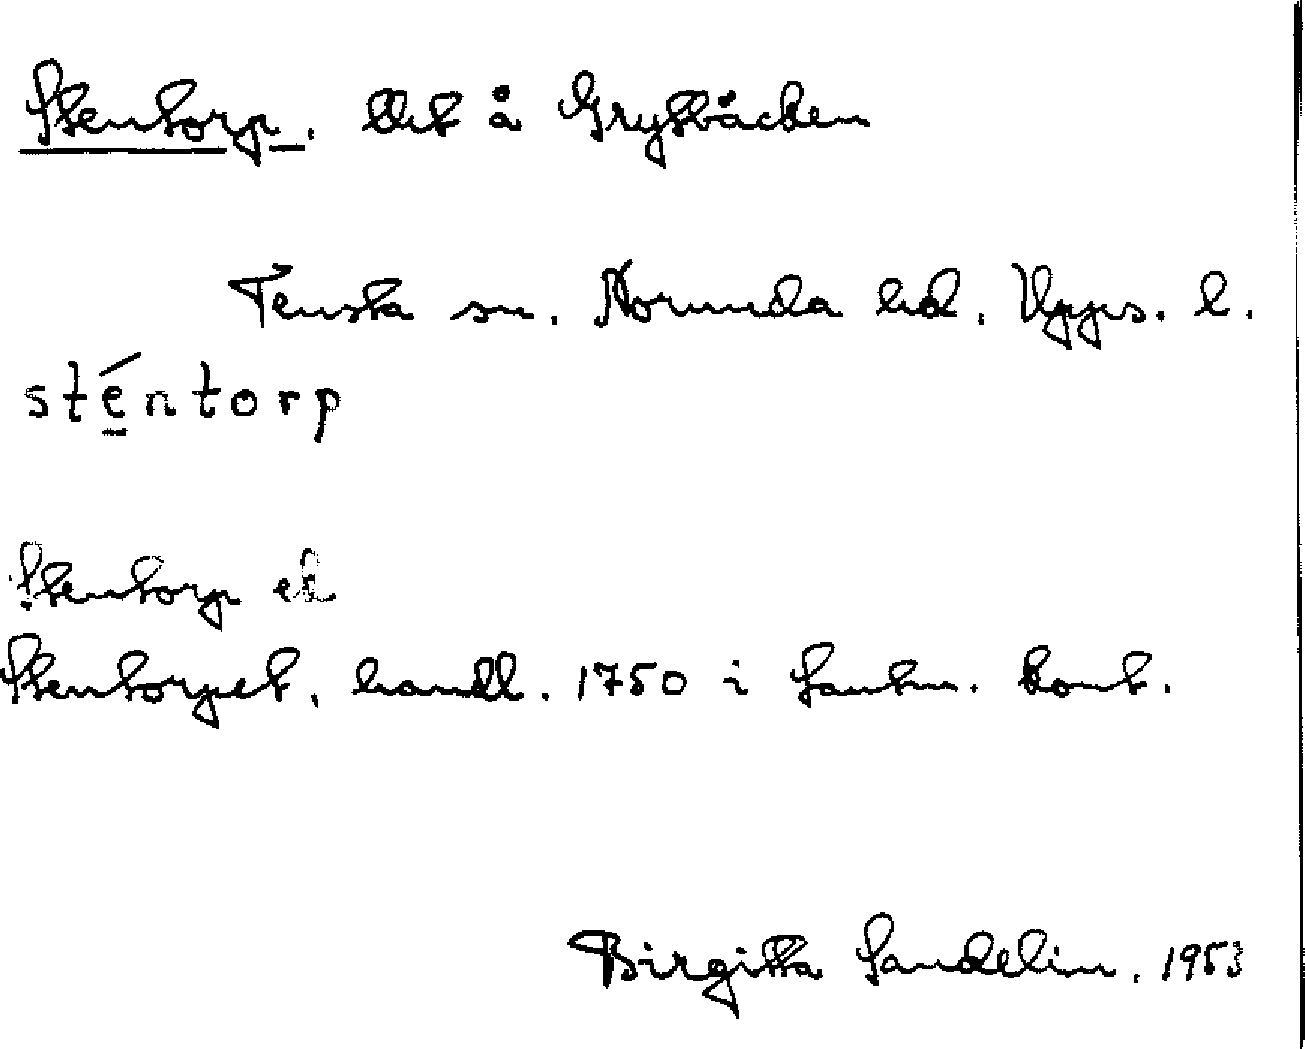 Stentorp. Ut å Grytbäcken
Tensta sn. Norunda hd. Upps. l.
sténtorp
Stentorp el
Stentorpet, handl. 1750 i Lantm. kont.
Birgitta Sandelin. 1953